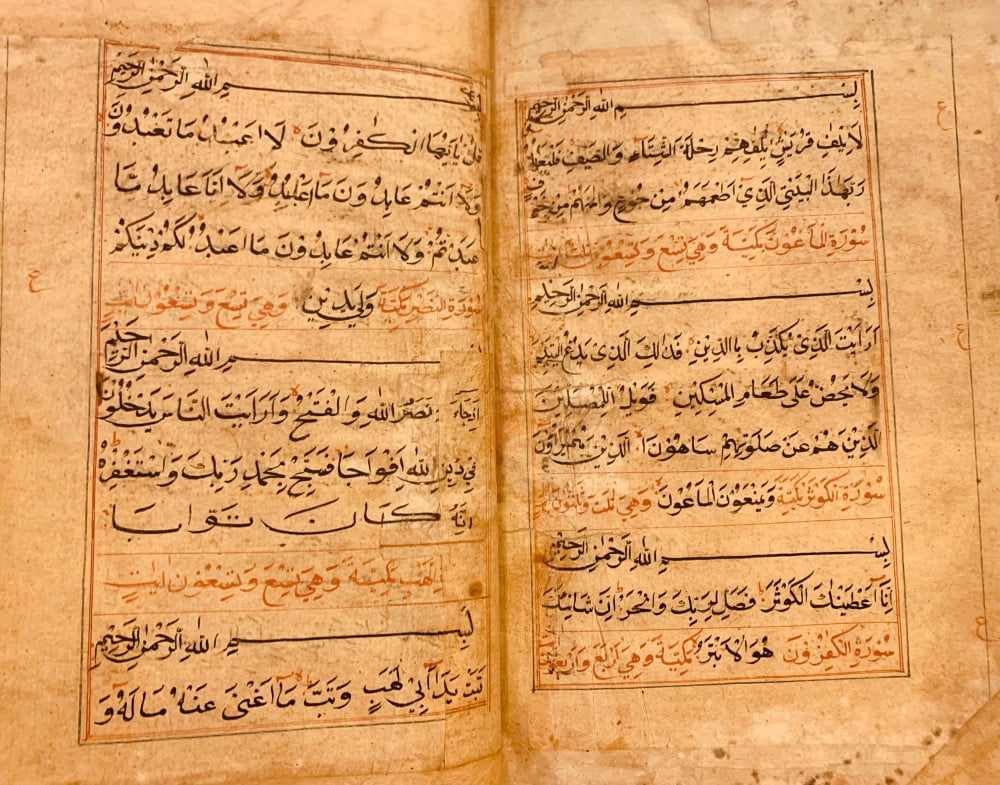 بِسْمِ اللهِ الرَّحْمٰنِ الرَّحِيْمِ
لِاِيْلٰفِ قُرَيْشٍ اٖلٰفِهِمْ رِحْلَةَ الشِّتَآءِ وَالصَّيْفِ فَلْيَعْبُدُوْا
رَبَّ هٰذَا الْبَيْتِ الَّذِيْ اَطْعَمَهُمْ مِنْ جُوْعٍ وَاٰمَنَهُمْ مِنْ خَوْفٍ
سُوْرَةُ الْمَاعُوْنَ مَكِّيَّةٌ وَهِيَ تِسْعٌ وَتِسْعُوْنَ
بِسْمِ اللهِ الرَّحْمٰنِ الرَّحِيْمِ
اَرَاَيْتَ الَّذِيْ يُكَذِّبُ بِالدِّيْنِ فَذَالِكَ الَّذِيْ يَدُعُّ الْيَتِيْمَ
وَلَا يَحُضُّ عَلٰى طَعَامِ الْمِسْكِيْنِ فَوَيْلٌ لِلْمُصَلِّيْنَ
الَّذِيْنَ هُمْ عَنْ صَلٰوتِهِمْ سَاهُوْنَ الَّذِيْنَ هُمْ يُرَآؤُنَ
سُوْرَةُ الْكَوْثَرْ مَكِّيَّةٌ وَيَمْنَعُوْنَ الْمَاعُوْنَ وَهِيَ
بِسْمِ اللهِ الرَّحْمٰنِ الرَّحِيْمِ
اِنَّآ اَعْطَيْنٰكَ الْكَوْثَرَ فَصَلِّ لِرَبِّكَ وَانْحَرْ اِنَّ شَانِئَكَ
سُوْرَةُ الْكٰفِرُوْنَ هُوَ الْاَبْتَرُ مَكِّيَّةٌ وَهِيَ اَرْبَعٌ وَاَرْبَعُوْنَ
بِسْمِ اللهِ الرَّحْمٰنِ الرَّحِيْمِ
قُلْ يٰاَيُّهَا الْكٰفِرُوْنَ لَا اَعْبُدُ مَا تَعْبُدُوْنَ
وَلَا اَنْتُمْ عَابِدُوْنَ مَا اَعْبُدُ وَلَا اَنَا عَابِدٌ مَّا
عَبَدْتُّمْ وَلَا اَنْتُمْ عَابِدُوْنَ مَا اَعْبُدُ لَكُمْ دِيْنُكُمْ
سُوْرَةُ النَّصْرِ مَكِّيَّةٌ وَلِيَ دِيْنِ وَهِيَ تِسْعٌ وَتِسْعُوْنَ
بِسْمِ اللهِ الرَّحْمٰنِ الرَّحِيْمِ
اِذَا جَآءَ نَصْرُ اللهِ وَالْفَتْحُ وَرَاَيْتَ النَّاسَ يَدْخُلُوْنَ
فِيْ دِيْنِ اللهِ اَفْوَاجًا فَسَبِّحْ بِحَمْدِ رَبِّكَ وَاسْتَغْفِرْهُ
اِنَّهٗ كَانَ تَوَّابًا
لَهَبْ مَكِّيَّةٌ وَهِيَ تِسْعٌ وَتِسْعُوْنَ اٰيٰتٍ
بِسْمِ اللهِ الرَّحْمٰنِ الرَّحِيْمِ
تَبَّتْ يَدَا اَبِيْ لَهَبٍ وَتَبَّ مَا اَغْنٰى عَنْهُ مَالُهٗ وَ
ع
ع
ع
ع